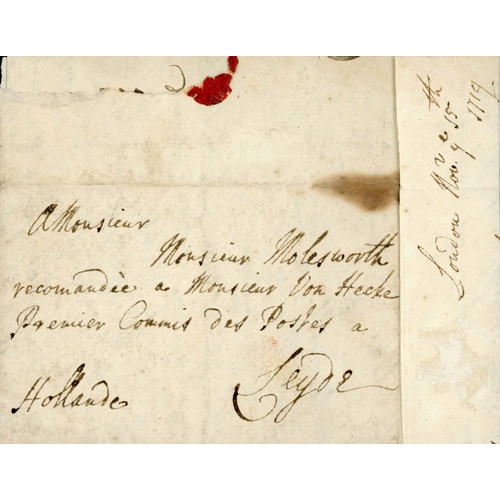 A Monsieur
Monsieur Molesworth
recomandèe a Monsieur Von Hecke
Premier Commis des Postes a
Leyde
Hollande
London Nov. yᵉ 15th
1719